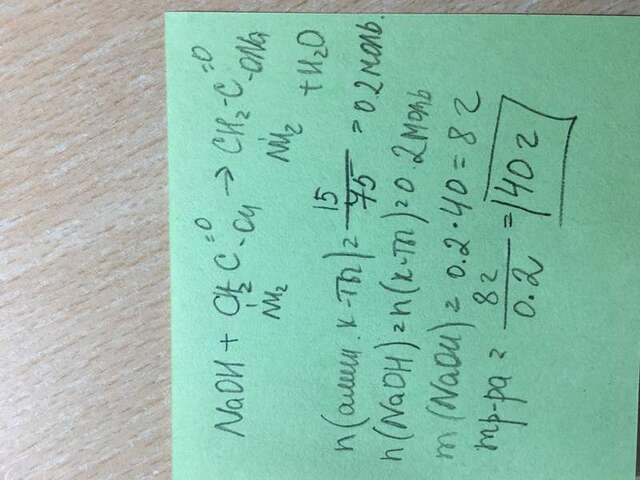 NaOH + CH₂-C=O-OH → CH₂-C=O-ONa
NH₂ NH₂ + H₂O
n(амин. к-ты) = 15/75 = 0.2 моль.
n(NaOH) = n(к-ты) = 0.2 моль
m(NaOH) = 0.2·40 = 8 г
mр-ра = 8г/0.2 = 40 г